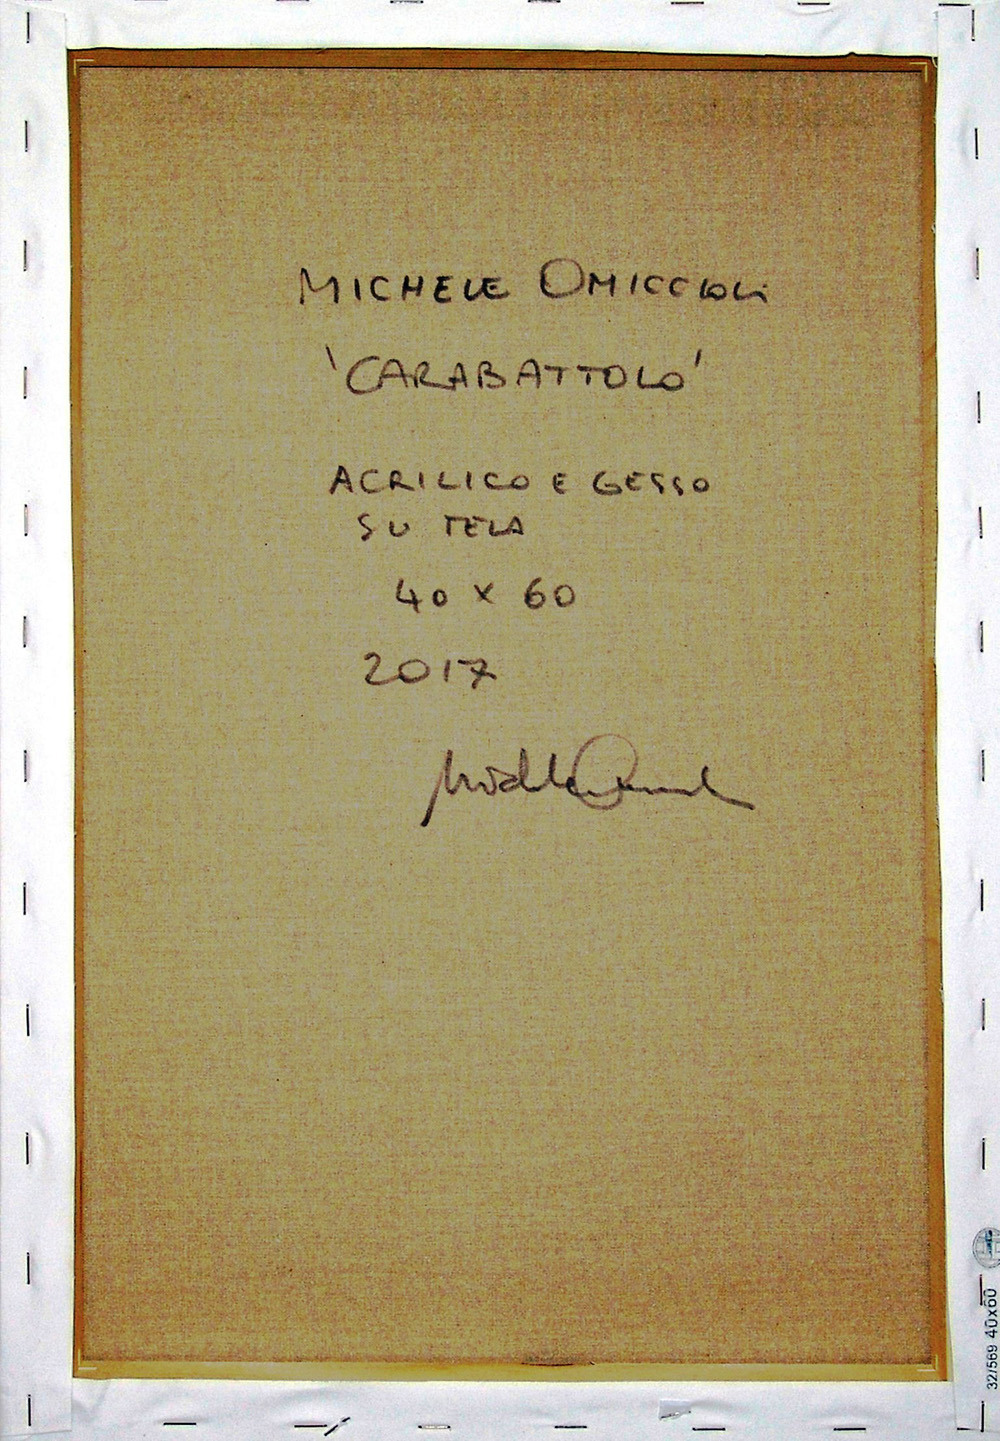 MICHELE OMICCIOLI
'CARABATTOLO'
ACRILICO E GESSO
SU TELA
40 x 60
2017
32/569 40x60